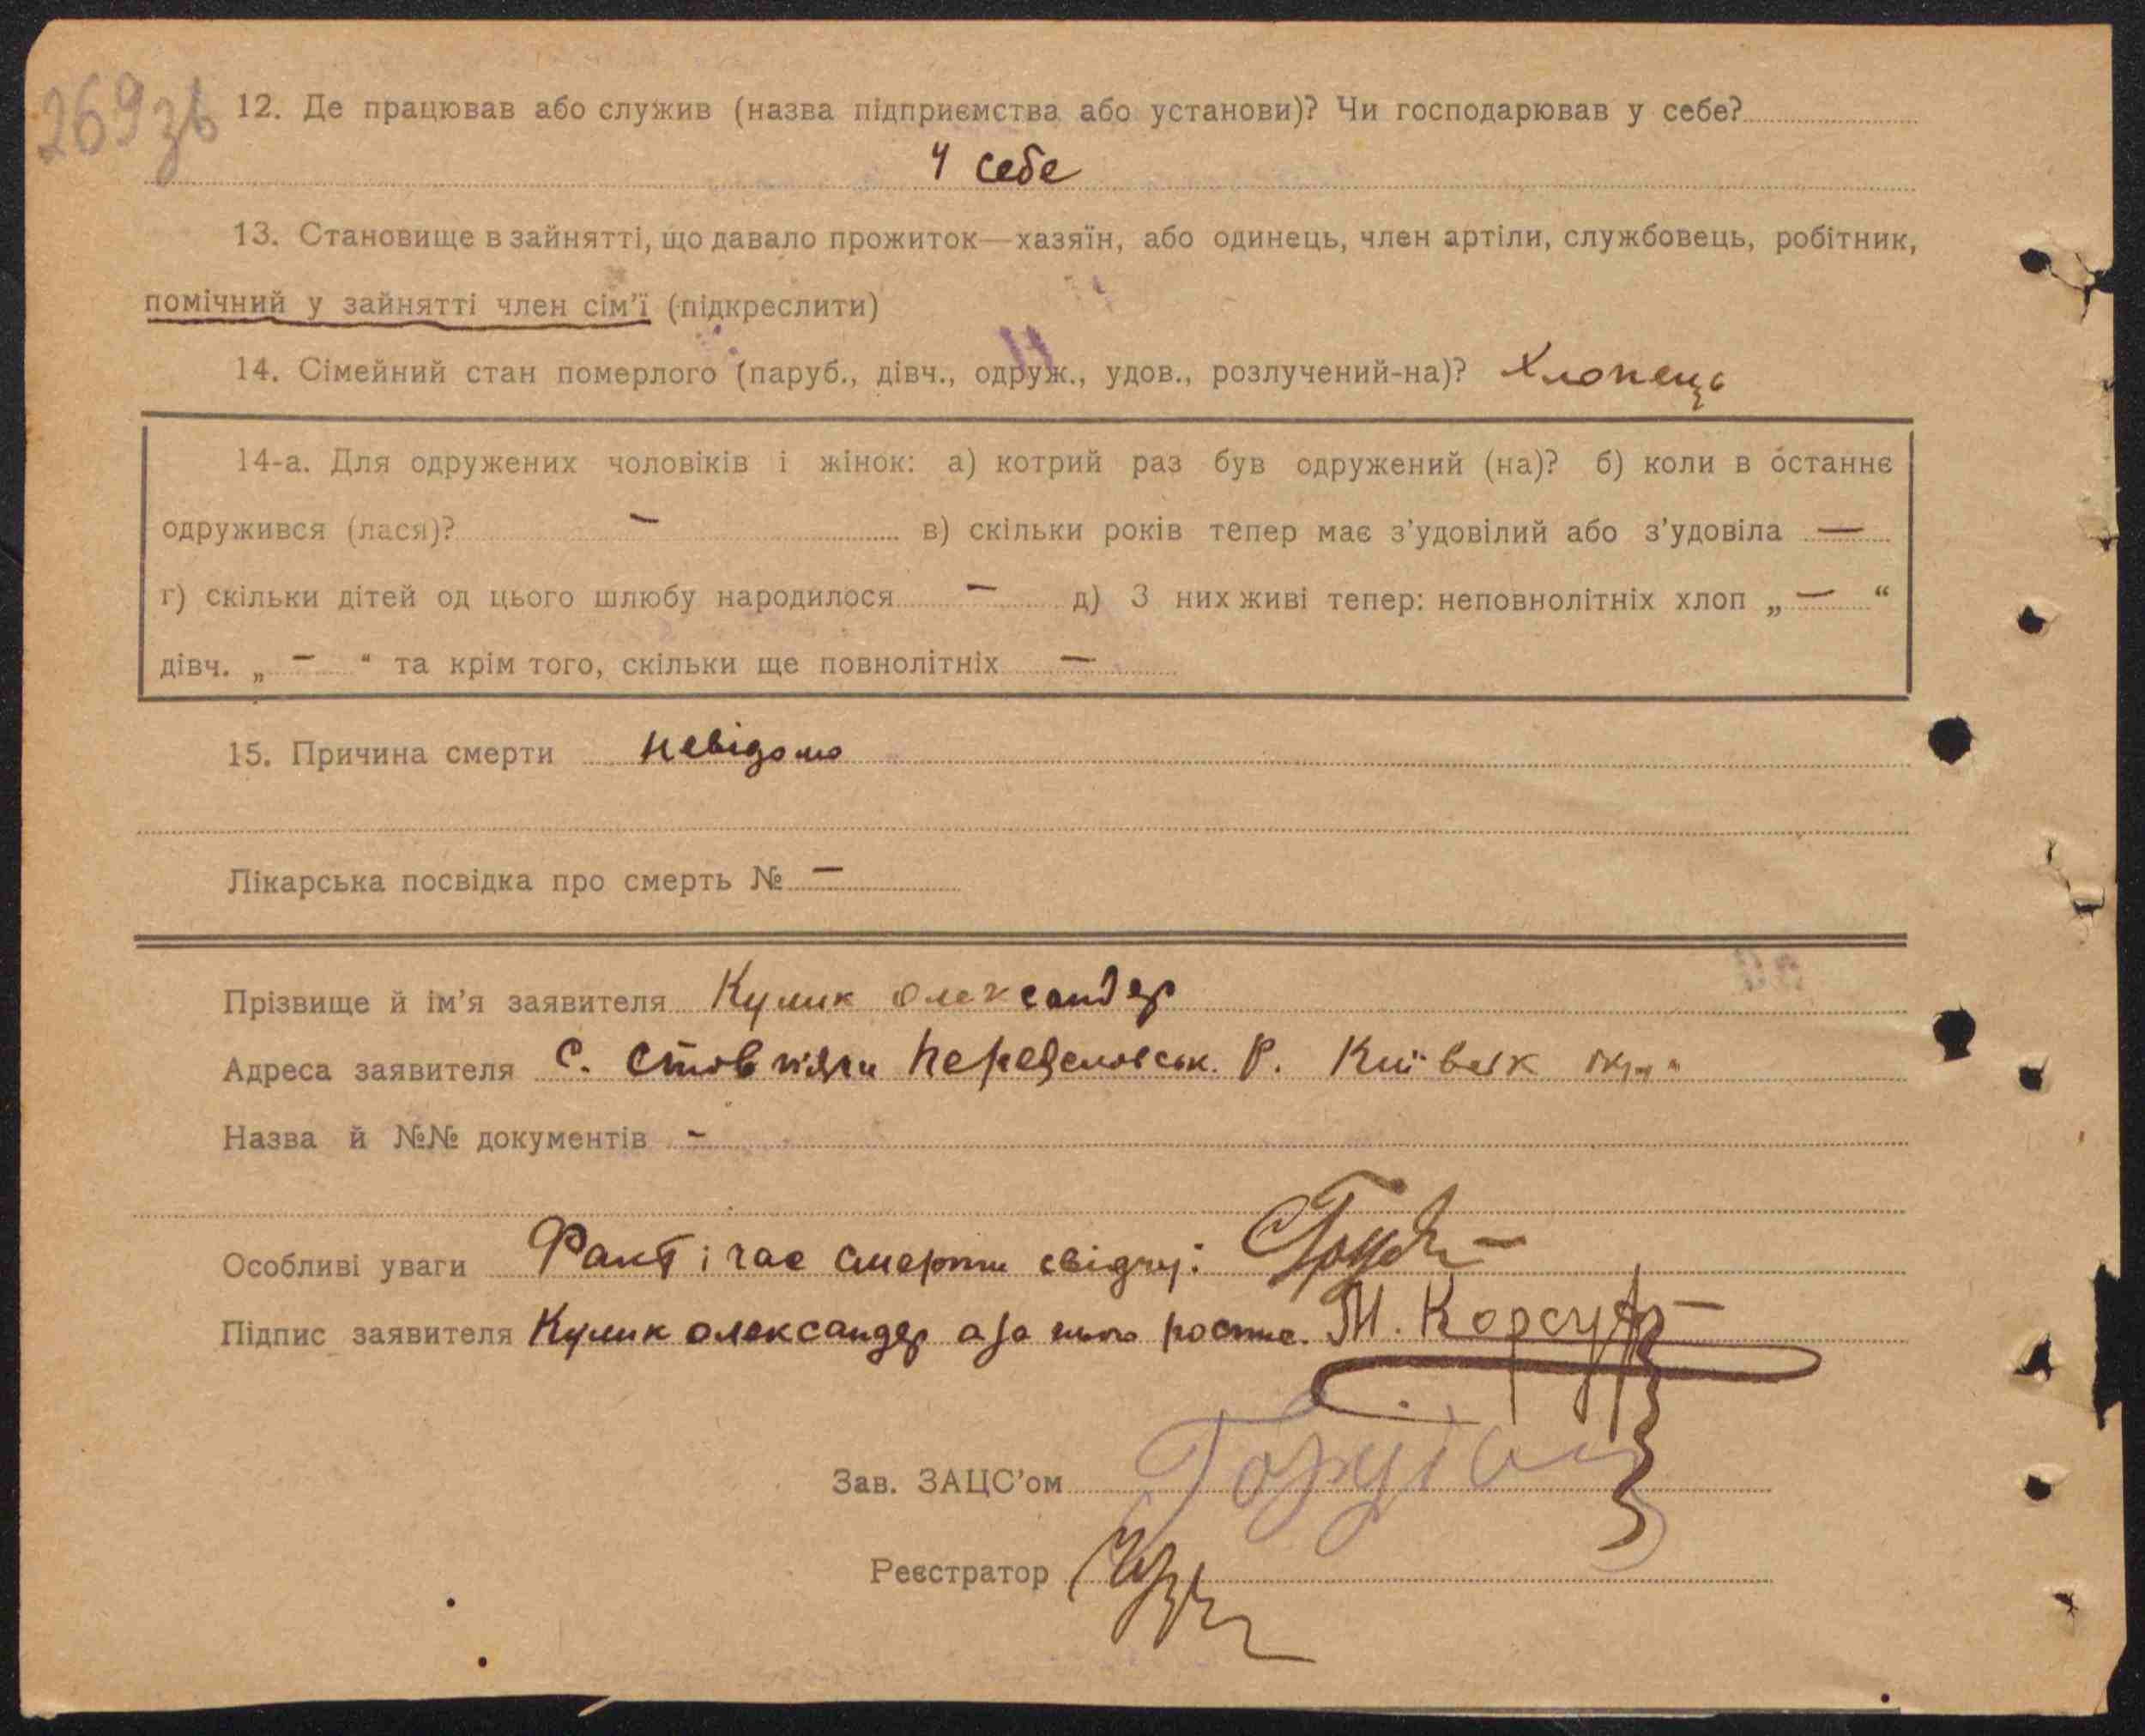 269 зв
12. Де працював або служив (назва підприємства або установи)? Чи господарював у себе?
У себе
13. Становище в зайнятті, що давало прожиток—хазяїн, або одинець, член артіли, службовець, робітник,
помічний у зайнятті член сім’ї (підкреслити)
14. Сімейний стан померлого (паруб., дівч., одруж., удов., розлучений-на)? Хлопець
14-а. Для одружених чоловіків і жінок: а) котрий раз був одружений (на)? б) коли в останнє
одружився (лася)? — в) скільки років тепер має з’удовілий або з’удовіла —
г) скільки дітей од цього шлюбу народилося — д) З них живі тепер: неповнолітніх хлоп „ — “
дівч. „ — “ та крім того, скільки ще повнолітніх —
15. Причина смерти невідомо
Лікарська посвідка про смерть № —
Прізвище й ім’я заявителя Кулик Олександер
Адреса заявителя С. Стовпяги Переяславськ. Р. Київськ
Назва й №№ документів -
Особливі уваги Факт і час смерти свідчу:
Підпис заявителя Кулик Олександер а за нього роспис. М.
Зав. ЗАЦС’ом
Реєстратор